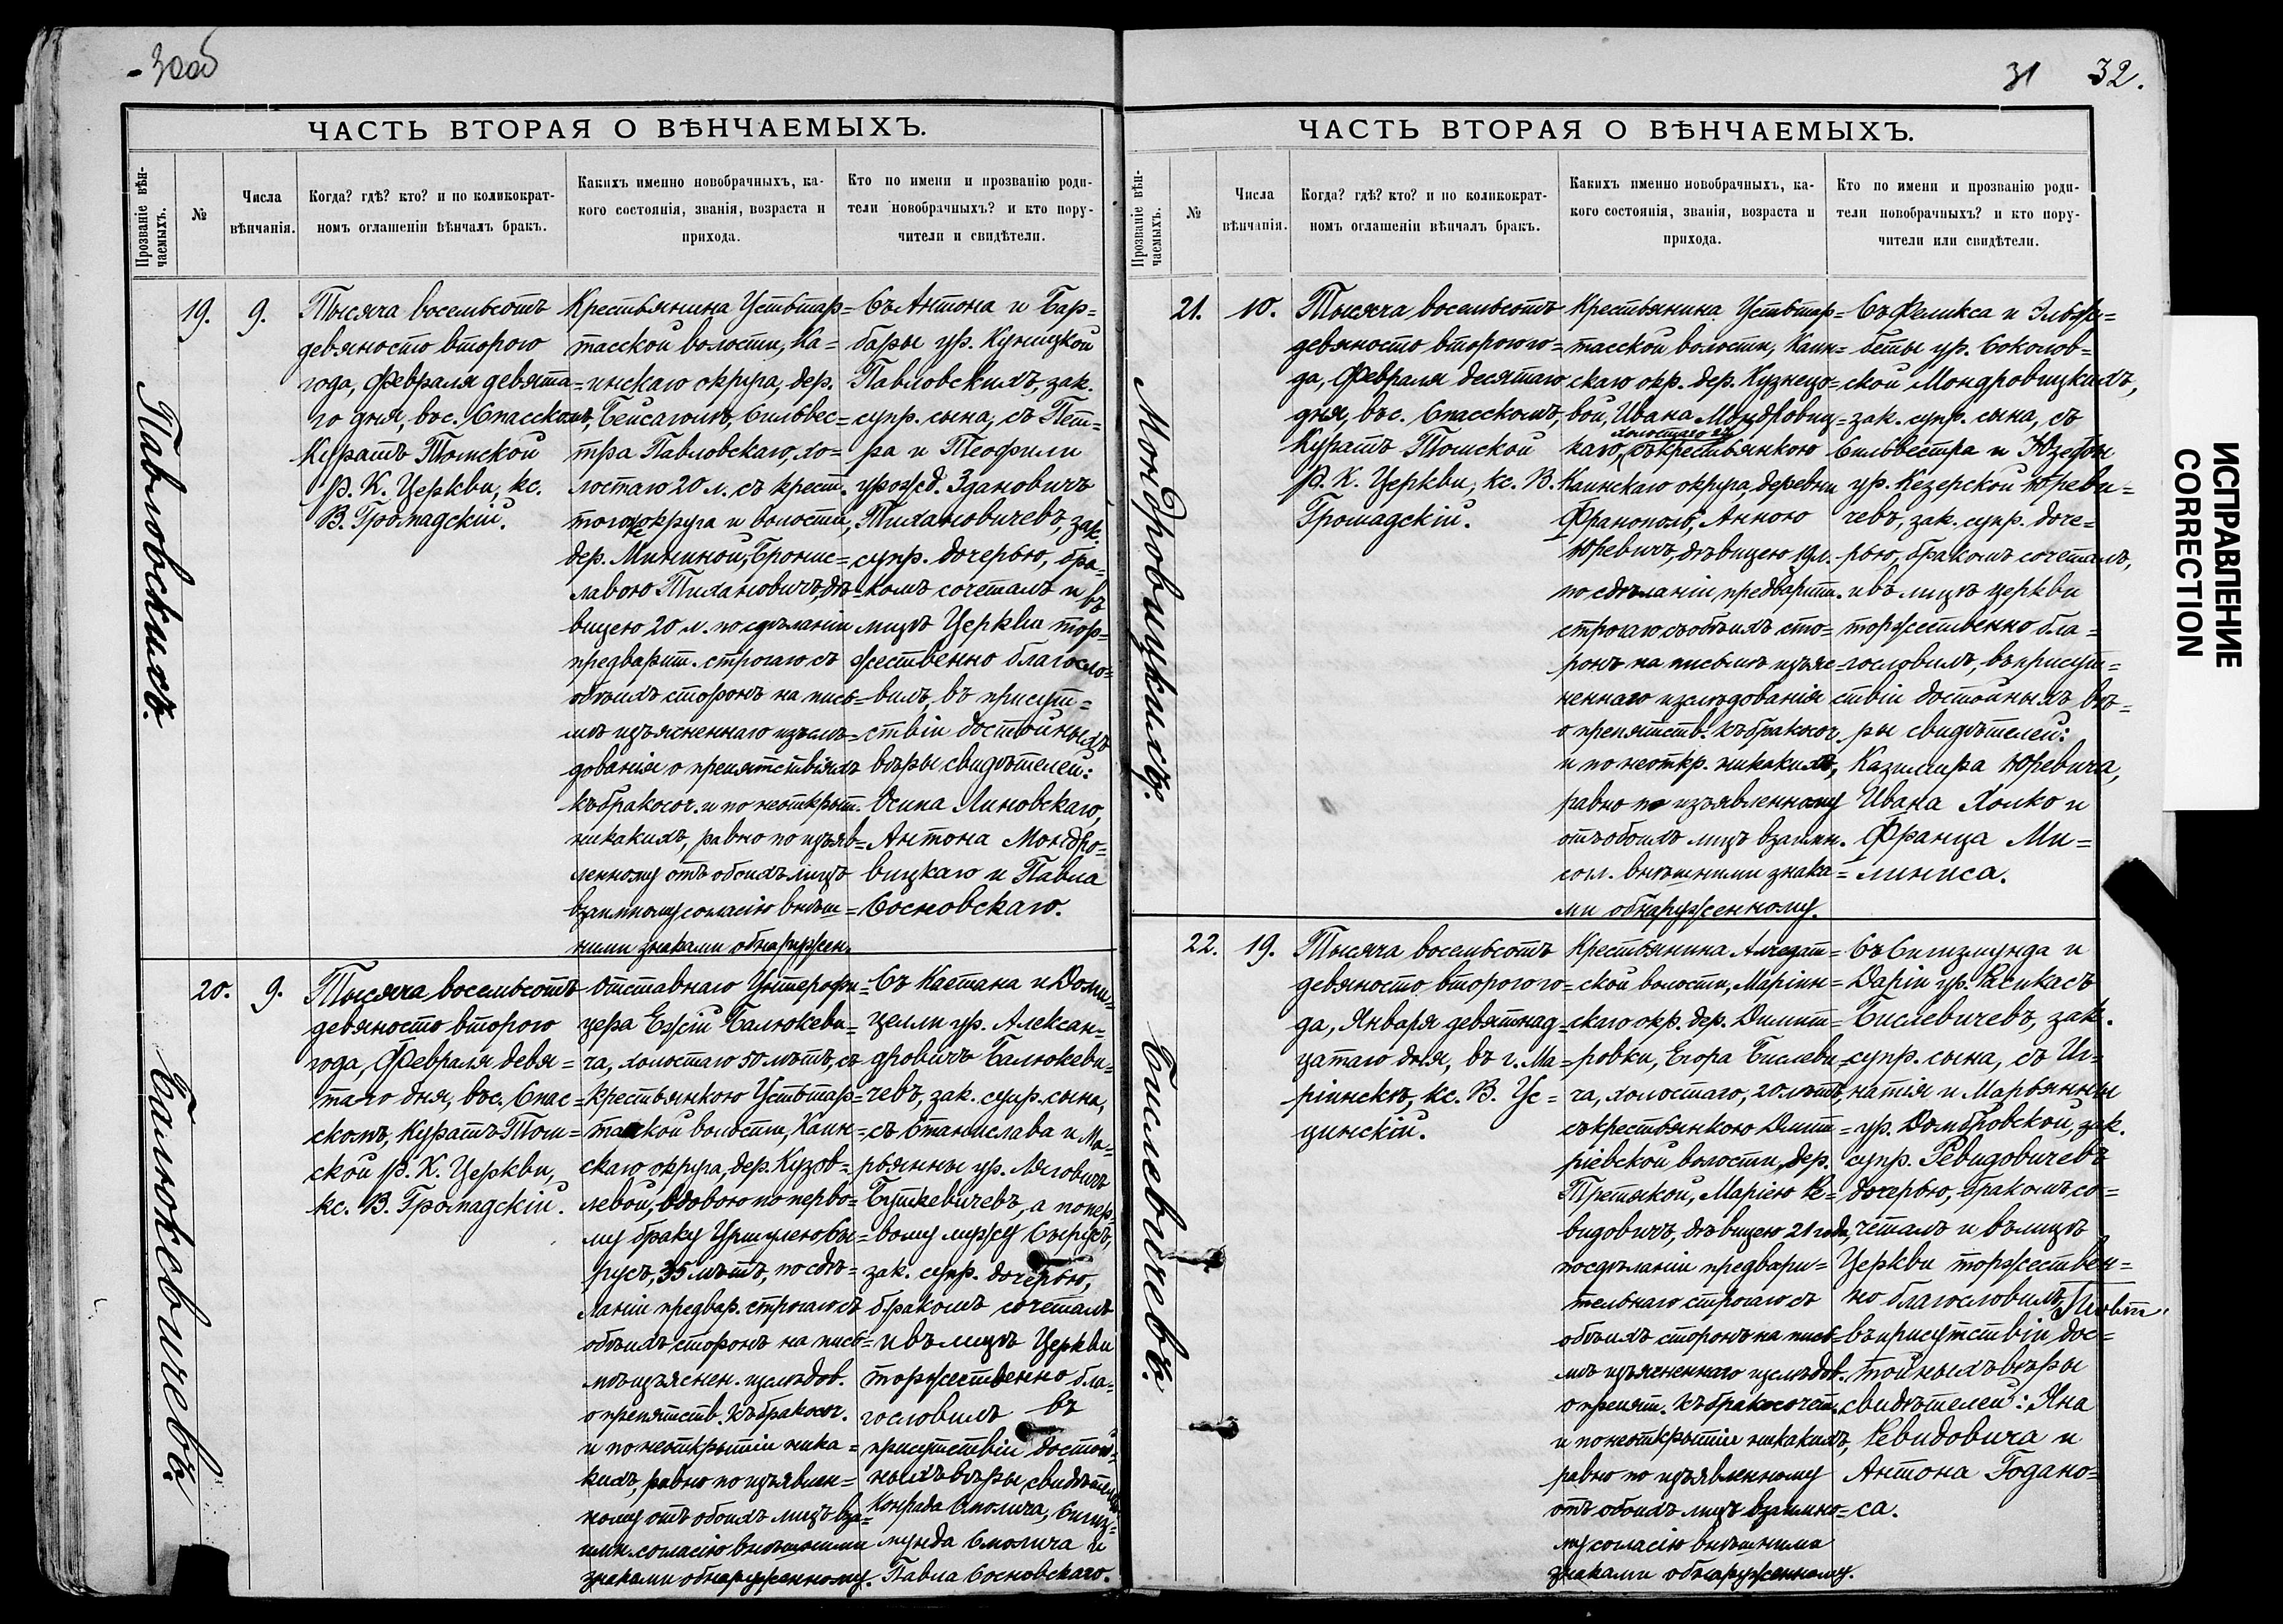 30об
ЧАСТЬ ВТОРАЯ О ВѢНЧАЕМЫХЪ.
Прозваніе вѣн-
чаемыхъ.
№
Числа
вѣнчанія.
Когда? гдѣ? кто? и по коликократ-
номъ оглашеніи вѣнчалъ бракъ.
Какихъ именно новобрачныхъ, ка-
кого состоянія, званія, возраста и
прихода.
Кто по имени и прозванію роди-
тели новобрачныхъ? и кто пору-
чители и свидѣтели.
Павловскихъ.
19.
9.
Тысяча восемьсотъ
девяносто второго
года, Февраля девята=
го дня, въ с. Спасскомъ,
Куратъ Томской
Р. К. Церкви, кс.
В. Громадскій.
Крестьянина Устьтар=
тасской волости, Ка=
инскаго округа, дер.
Бейсагомъ, Сильвес=
тра Павловскаго, хо=
лостаго 20 л. съ крест.
тогоже округа и волости,
дер. Мининой, Бронис=
лавою Тихановичъ, дѣ=
вицею 20 л. по сдѣланіи
предварит. строгаго съ
обѣихъ сторонъ на пись=
мѣ изъясненнаго изслѣ=
дованія о препятствіяхъ
къ бракосоч. и по неоткрыт.
никакихъ, равно по изъяв=
ленному отъ обоихъ лицъ
взаимному согласію внѣш=
ними знаками обнаружен.
Съ Антона и Вар=
бары ур. Куницкой
Павловскихъ, зак.
супр. сына, съ Пет=
ра и Теофили
урожд. Здановичъ
Тихановичевъ, зак.
супр. дочерью, бра=
комъ сочеталъ и въ
лицѣ Церкви тор=
жественно благосло=
вилъ, въ присут=
ствіи достойныхъ
вѣры свидѣтелей:
Осипа Линовскаго,
Антона Мондро=
вицкаго и Павла
Сосновскаго.
Балюкевичевъ.
20.
9.
Тысяча восемьсотъ
девяносто второго
года, Февраля девя=
таго дня, въ с. Спас=
скомъ, Куратъ Том=
ской Р. К. Церкви,
кс. В. Громадскій.
Отставнаго Унтерофи=
цера Ежія Балюкеви=
ча, холостаго 50 лѣтъ, съ
крестьянкою Устьтар=
тасской волости, Каин=
скаго округа, дер. Кузов=
левой, вдовою по перво=
му браку Уршулею Сы=
русъ, 35 лѣтъ, по сдѣ=
ланіи предвар. строгаго съ
обѣихъ сторонъ на пись=
мѣ изъяснен. изслѣдов.
о препятств. къ бракосоч.
и по неоткрытіи ника=
кихъ, равно по изъявлен=
ному отъ обоихъ лицъ вза=
имн. согласію внѣшними
знаками обнаруженному.
Съ Каетана и Доми=
целли ур. Алексан=
дровичъ Балюкеви=
чевъ, зак. супр. сына,
съ Станислава и Ма=
рьянны ур. Ляговичъ
Буткевичевъ, а по пер=
вому мужу Сырусъ,
зак. супр. дочерью,
бракомъ сочеталъ
и въ лицѣ Церкви
торжественно бла=
гословилъ въ
присутствіи достой=
ныхъ вѣры свидѣтелей
Конрада Смолича, Сигиз=
мунда Смолича и
Павла Сосновскаго.
31 32.
ЧАСТЬ ВТОРАЯ О ВѢНЧАЕМЫХЪ.
Прозваніе вѣн-
чаемыхъ.
№
Числа
вѣнчанія.
Когда? гдѣ? кто? и по коликократ-
номъ оглашеніи вѣнчалъ бракъ.
Какихъ именно новобрачныхъ, ка-
кого состоянія, званія, возраста и
прихода.
Кто по имени и прозванію роди-
тели новобрачныхъ? и кто пору-
чители или свидѣтели.
Мондровицкихъ.
21.
10.
Тысяча восемьсотъ
девяносто второго го=
да, Февраля десятаго
дня, въ с. Спасскомъ,
Куратъ Томской
Р. К. Церкви, кс. В.
Громадскій.
Крестьянина Устьтар=
тасской волости, Каин=
скаго окр. дер. Кузнецо=
вой, Ивана Мондровиц=
холостаго
каго, съ крестьянкою
Каинскаго округа, деревни
Франополь, Анною
Юревичъ, дѣвицею 19 л.
по сдѣланіи предварит.
строгаго съ обѣихъ сто=
ронъ на письмѣ изъяс=
неннаго изслѣдованія
о препятств. къ бракосоч.
и по неоткр. никакихъ,
равно по изъявленному
отъ обоихъ лицъ взаимн.
согл. внѣшними знака=
ми обнаруженному.
Съ Феликса и Эльжи=
беты ур. Соколов=
ской Мондровицкихъ,
зак. супр. сына, съ
Сильвестра и Юзефы
ур. Кезерской Юреви=
чевъ, зак. супр. доче=
рью, бракомъ сочеталъ,
и въ лицѣ церкви
торжественно бла=
гословилъ, въ присут=
ствіи достойныхъ вѣ=
ры свидѣтелей:
Казимира Юревича,
Ивана Холко и
Франца Ми=
линиса.
Бислевичевъ.
22.
19.
Тысяча восемьсотъ
девяносто второго го=
да, Января девятнад=
цатаго дня, въ г. Ма=
ріинскѣ, кс. В. Ус=
цинскій.
Крестьянина Алчедат=
ской волости, Маріин=
скаго окр. дер. Димит=
ровки, Егора Бислеви=
ча, холостаго, 20 лѣтъ,
съ крестьянкою Дмит=
ріевской волости, дер.
Третякой, Маріею Ре=
видовичъ, дѣвицею 21 года,
по сдѣланіи предвари=
тельнаго строгаго съ
обѣихъ сторонъ на пись=
мѣ изъясненнаго изслѣдов.
о препят. къ бракосочет.
и по неоткрытіи никакихъ,
равно по изъявленному
отъ обоихъ лицъ взаимно=
му согласію внѣшними
знаками обнаруженному.
Съ Сигизмунда и
Даріи ур. Расикасъ
Бислевичевъ, зак.
супр. сына, съ Иг=
натія и Марьянны
ур. Домбровской, зак.
супр. Ревидовичевъ
дочерью, бракомъ со=
четалъ и въ лицѣ
Церкви торжествен=
но благословилъ,
въ присутствіи дос=
тойныхъ вѣры
свидѣтелей: Яна
Ревидовича и
Антона Годано=
са.
ИСПРАВЛЕНИЕ
CORRECTION